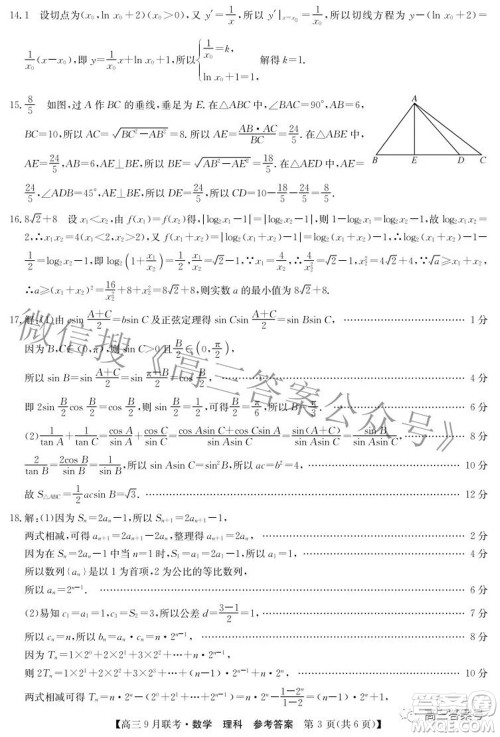 14. 1 设切点为(x₀, ln x₀+2)(x₀>0), 又 y′=1/x, 所以 y′|ₓ₌ₓ₀=1/x₀, 所以切线方程为 y-(ln x₀+2)=
1/x₀(x-x₀), 即 y=1/x₀ x+ln x₀+1, 所以{1/x₀=k, ln x₀+1=1, 解得 k=1.
15. 8/5 如图, 过 A 作 BC 的垂线, 垂足为 E. 在△ABC 中, ∠BAC=90°, AB=6,
BC=10, 所以 AC=√(BC²-AB²)=8. 所以 AE=AB·AC/BC=24/5. 在△ABE 中,
AE=24/5, AB=6, AE⊥BE, 所以 BE=√(AB²-AE²)=18/5. 在△AED 中, AE=
24/5, ∠ADB=45°, AE⊥BE, 所以 DE=24/5, 所以 CD=10-18/5-24/5=8/5.
A
B E D C
16. 8√2+8 设 x₁<x₂, 由 f(x₁)=f(x₂)得, |log₂x₁-1|=|log₂x₂-1|, 则 1-log₂x₁=log₂x₂-1, 故 log₂x₁x₂=
2, ∴x₁x₂=4(x₁<2, x₂>2), 又 f(x₁+x₂)=|log₂(x₁+x₂)-1|=log₂(x₁+x₂)-1, ∴log₂(x₁+x₂)-1-
1/2=log₂x₂-1, 即 log₂(1+x₁/x₂)=1/2
∴a≥(x₁+x₂)²=16/x₂²+x₂²+8=8√2+8, 则实数 a 的最小值为 8√2+8.
17. 解:(1)由 a sin (A+C)/2=b sin C 及正弦定理得 sin C sin (A+C)/2=sin B sin C, …… 1 分
因为 B, C∈(0, π), 则 sin C>0 且 B/2∈(0, π/2)
所以 sin B=sin (A+C)/2=sin (π-B)/2=cos B/2, …… 4 分
即 2sin B/2 cos B/2=cos B/2, 则 sin B/2=1/2, 可得 B/2=π/6, 所以 B=π/3. …… 6 分
(2) 1/tan A+1/tan C=cos A/sin A+cos C/sin C=(sin A cos C+cos C sin A)/(sin A sin C)=sin(A+C)/(sin A sin C)=sin B/(sin A sin C), …… 8 分
2/tan B=2cos B/sin B=1/sin B, 所以 sin A sin C=sin²B, 所以 ac=b²=4, …… 10 分
故 S△ABC=1/2 ac sin B=√3. …… 12 分
18. 解:(1)因为 Sₙ=2aₙ-1, 所以 Sₙ₊₁=2aₙ₊₁-1,
两式相减, 可得 aₙ₊₁=2aₙ₊₁-2aₙ, 所以 aₙ₊₁=2aₙ. …… 2 分
因为在 Sₙ=2aₙ-1 中当 n=1 时, S₁=a₁=2a₁-1, 所以 a₁=1. …… 4 分
所以数列{aₙ}是以 1 为首项, 2 为公比的等比数列,
所以 aₙ=2ⁿ⁻¹. …… 6 分
(2)易知 c₁=a₁=1, c₃=S₂=3, 所以公差 d=(3-1)/2=1, …… 7 分
所以 cₙ=n, 所以 bₙ=aₙ·cₙ=n·2ⁿ⁻¹, …… 8 分
因为 Tₙ=1×2⁰+2×2¹+3×2²+…+n·2ⁿ⁻¹,
则 2Tₙ=1×2¹+2×2²+3×2³+…+(n-1)·2ⁿ⁻¹+n·2ⁿ, …… 10 分
两式相减可得 -Tₙ=2⁰+2¹+2²+…+2ⁿ⁻¹-n·2ⁿ=(1-2ⁿ)/(1-2)-n·2ⁿ,
【高三 9 月联考·数学 理科 参考答案 第 3 页(共 6 页)】
微信搜《高三答案公众号》
高三答案号